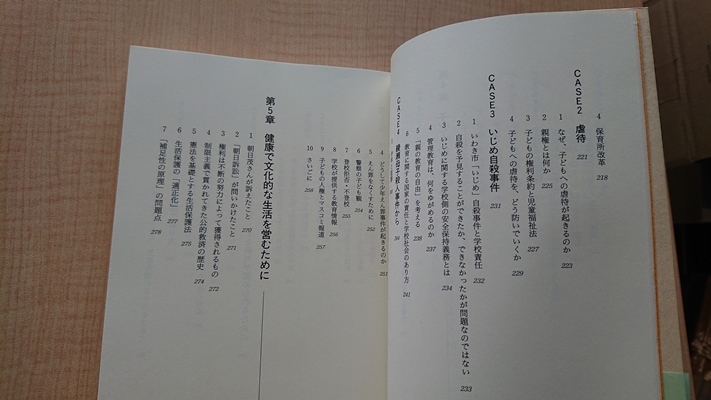 4 保育所改革 218
CASE2 虐待 221
1 なぜ、子どもへの虐待が起きるのか 223
2 親権とは何か 225
3 子どもの権利条約と児童福祉法 227
4 子どもへの虐待を、どう防いでいくか 229
CASE3 いじめ自殺事件 231
1 いわき市「いじめ」自殺事件と学校責任 232
2 自殺を予見することができたか、できなかったかが問題なのではない 233
3 いじめに関する学校側の安全保持義務とは 234
4 管理教育は、何をゆがめるのか 237
5 「親の教育の自由」を考える 238
6 教育に関する国家の責任と学校社会のあり方 241
CASE4 綾瀬母子殺人事件から
4 どうして少年えん罪事件が起きるのか 251
5 えん罪をなくすために 252
6 警察の子ども観 254
7 登校拒否・不登校 255
8 学校が提供する教育情報 256
9 子どもの人権とマスコミ報道 257
10 さいごに 258
第5章 健康で文化的な生活を営むために
1 朝日茂さんが訴えたこと 270
2 「朝日訴訟」が問いかけたこと 271
3 権利は不断の努力によって獲得されるもの 272
4 制限主義で貫かれてきた公的救済の歴史 274
5 憲法を基礎とする生活保護法 275
6 生活保護の「適正化」 277
7 「補足性の原理」の問題点 278